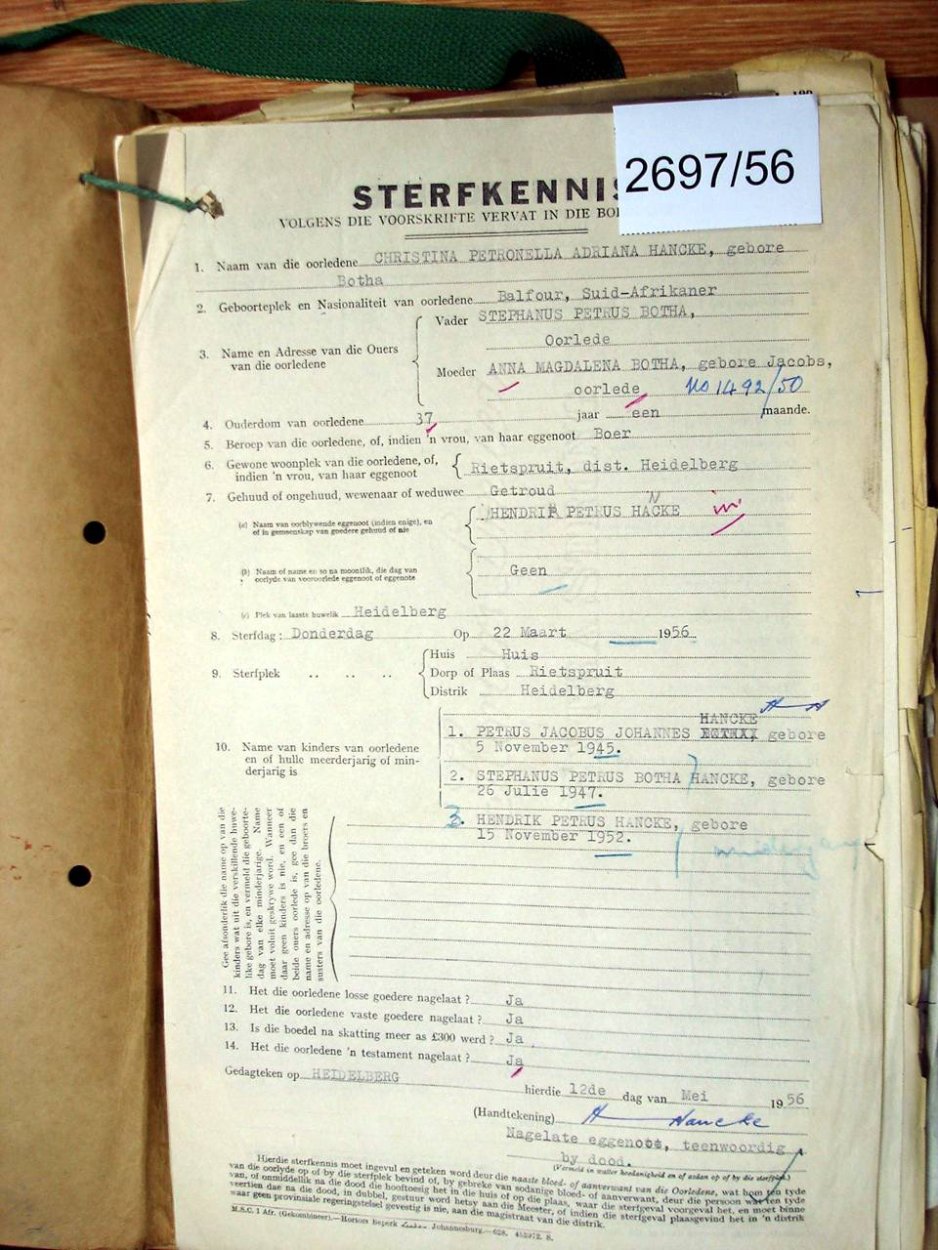 2697/56
STERFKENNIS
VOLGENS DIE VOORSKRIFTE VERVAT IN DIE BO
1. Naam van die oorledene CHRISTINA PETRONELLA ADRIANA HANCKE, gebore
Botha
2. Geboorteplek en Nasionaliteit van oorledene Balfour, Suid-Afrikaner
3. Name en Adresse van die Ouers van die oorledene
Vader STEPHANUS PETRUS BOTHA,
Oorlede
Moeder ANNA MAGDALENA BOTHA, gebore Jacobs,
oorlede, No 1492/50
4. Ouderdom van oorledene 37 jaar een maande.
5. Beroep van die oorledene, of, indien 'n vrou, van haar eggenoot Boer
6. Gewone woonplek van die oorledene, of,
indien 'n vrou, van haar eggenoot Rietspruit, dist. Heidelberg
7. Gehuud of ongehuud, wewenaar of weduwee Getroud
(a) Naam van oorblywende eggenoot (indien enige), en
of in gemeenskap van goedere gehuud of nie
HENDRIK PETRUS HACKE N in
(b) Naam of name en so na moontlik, die dag van
oorlyde van vooroorlede eggenoot of eggenote
Geen
(c) Plek van laaste huwelik Heidelberg
8. Sterfdag: Donderdag Op 22 Maart 1956
9. Sterfplek .. .. ..
Huis Huis
Dorp of Plaas Rietspruit
Distrik Heidelberg
10. Name van kinders van oorledene
en of hulle meerderjarig of min-
derjarig is
HANCKE
1. PETRUS JACOBUS JOHANNES BOTHA, gebore
5 November 1945.
2. STEPHANUS PETRUS BOTHA HANCKE, gebore
26 Julie 1947.
3. HENDRIK PETRUS HANCKE, gebore
15 November 1952.
Gee afsonderlik die name op van die
kinders wat uit die verskillende huwe-
like gebore is, en vermeld die geboorte-
dag van elke minderjarige. Name
moet voluit geskrywe word. Wanneer
daar geen kinders is nie, en een of
beide ouers oorlede is, gee dan die
name en adresse op van die broers en
susters van die oorledene.
11. Het die oorledene losse goedere nagelaat? Ja
12. Het die oorledene vaste goedere nagelaat? Ja
13. Is die boedel na skatting meer as £300 werd? Ja
14. Het die oorledene 'n testament nagelaat? Ja
Gedagteken op HEIDELBERG
hierdie 12de dag van Mei 1956
(Handtekening) H Hancke
Nagelate eggenoot, teenwoordig
by dood.
(Vermeld in watter hoedanigheid en of asdan op of by die sterfplek.)
Hierdie sterfkennis moet ingevul en geteken word deur die naaste bloed- of aanverwant van die Oorledene, wat hom ten tyde
van die oorlyde op of by die sterfplek bevind of, by gebreke van sodanige bloed- of aanverwant, deur die persoon wat ten tyde
van, of onmiddellik na die dood die hooftoesig het in die huis of op die plaas, waar die sterfgeval voorgeval het, en moet binne
veertien dae na die dood, in dubbel, gestuur word hetsy aan die Meester, of indien die sterfgeval plaasgevind het in 'n distrik
waar geen provinsiale regeringstelsel gevestig is nie, aan die magistraat van die distrik.
M.S.C. 1 Afr. (Gekombineer).—Hortors Beperk Johannesburg.—628.